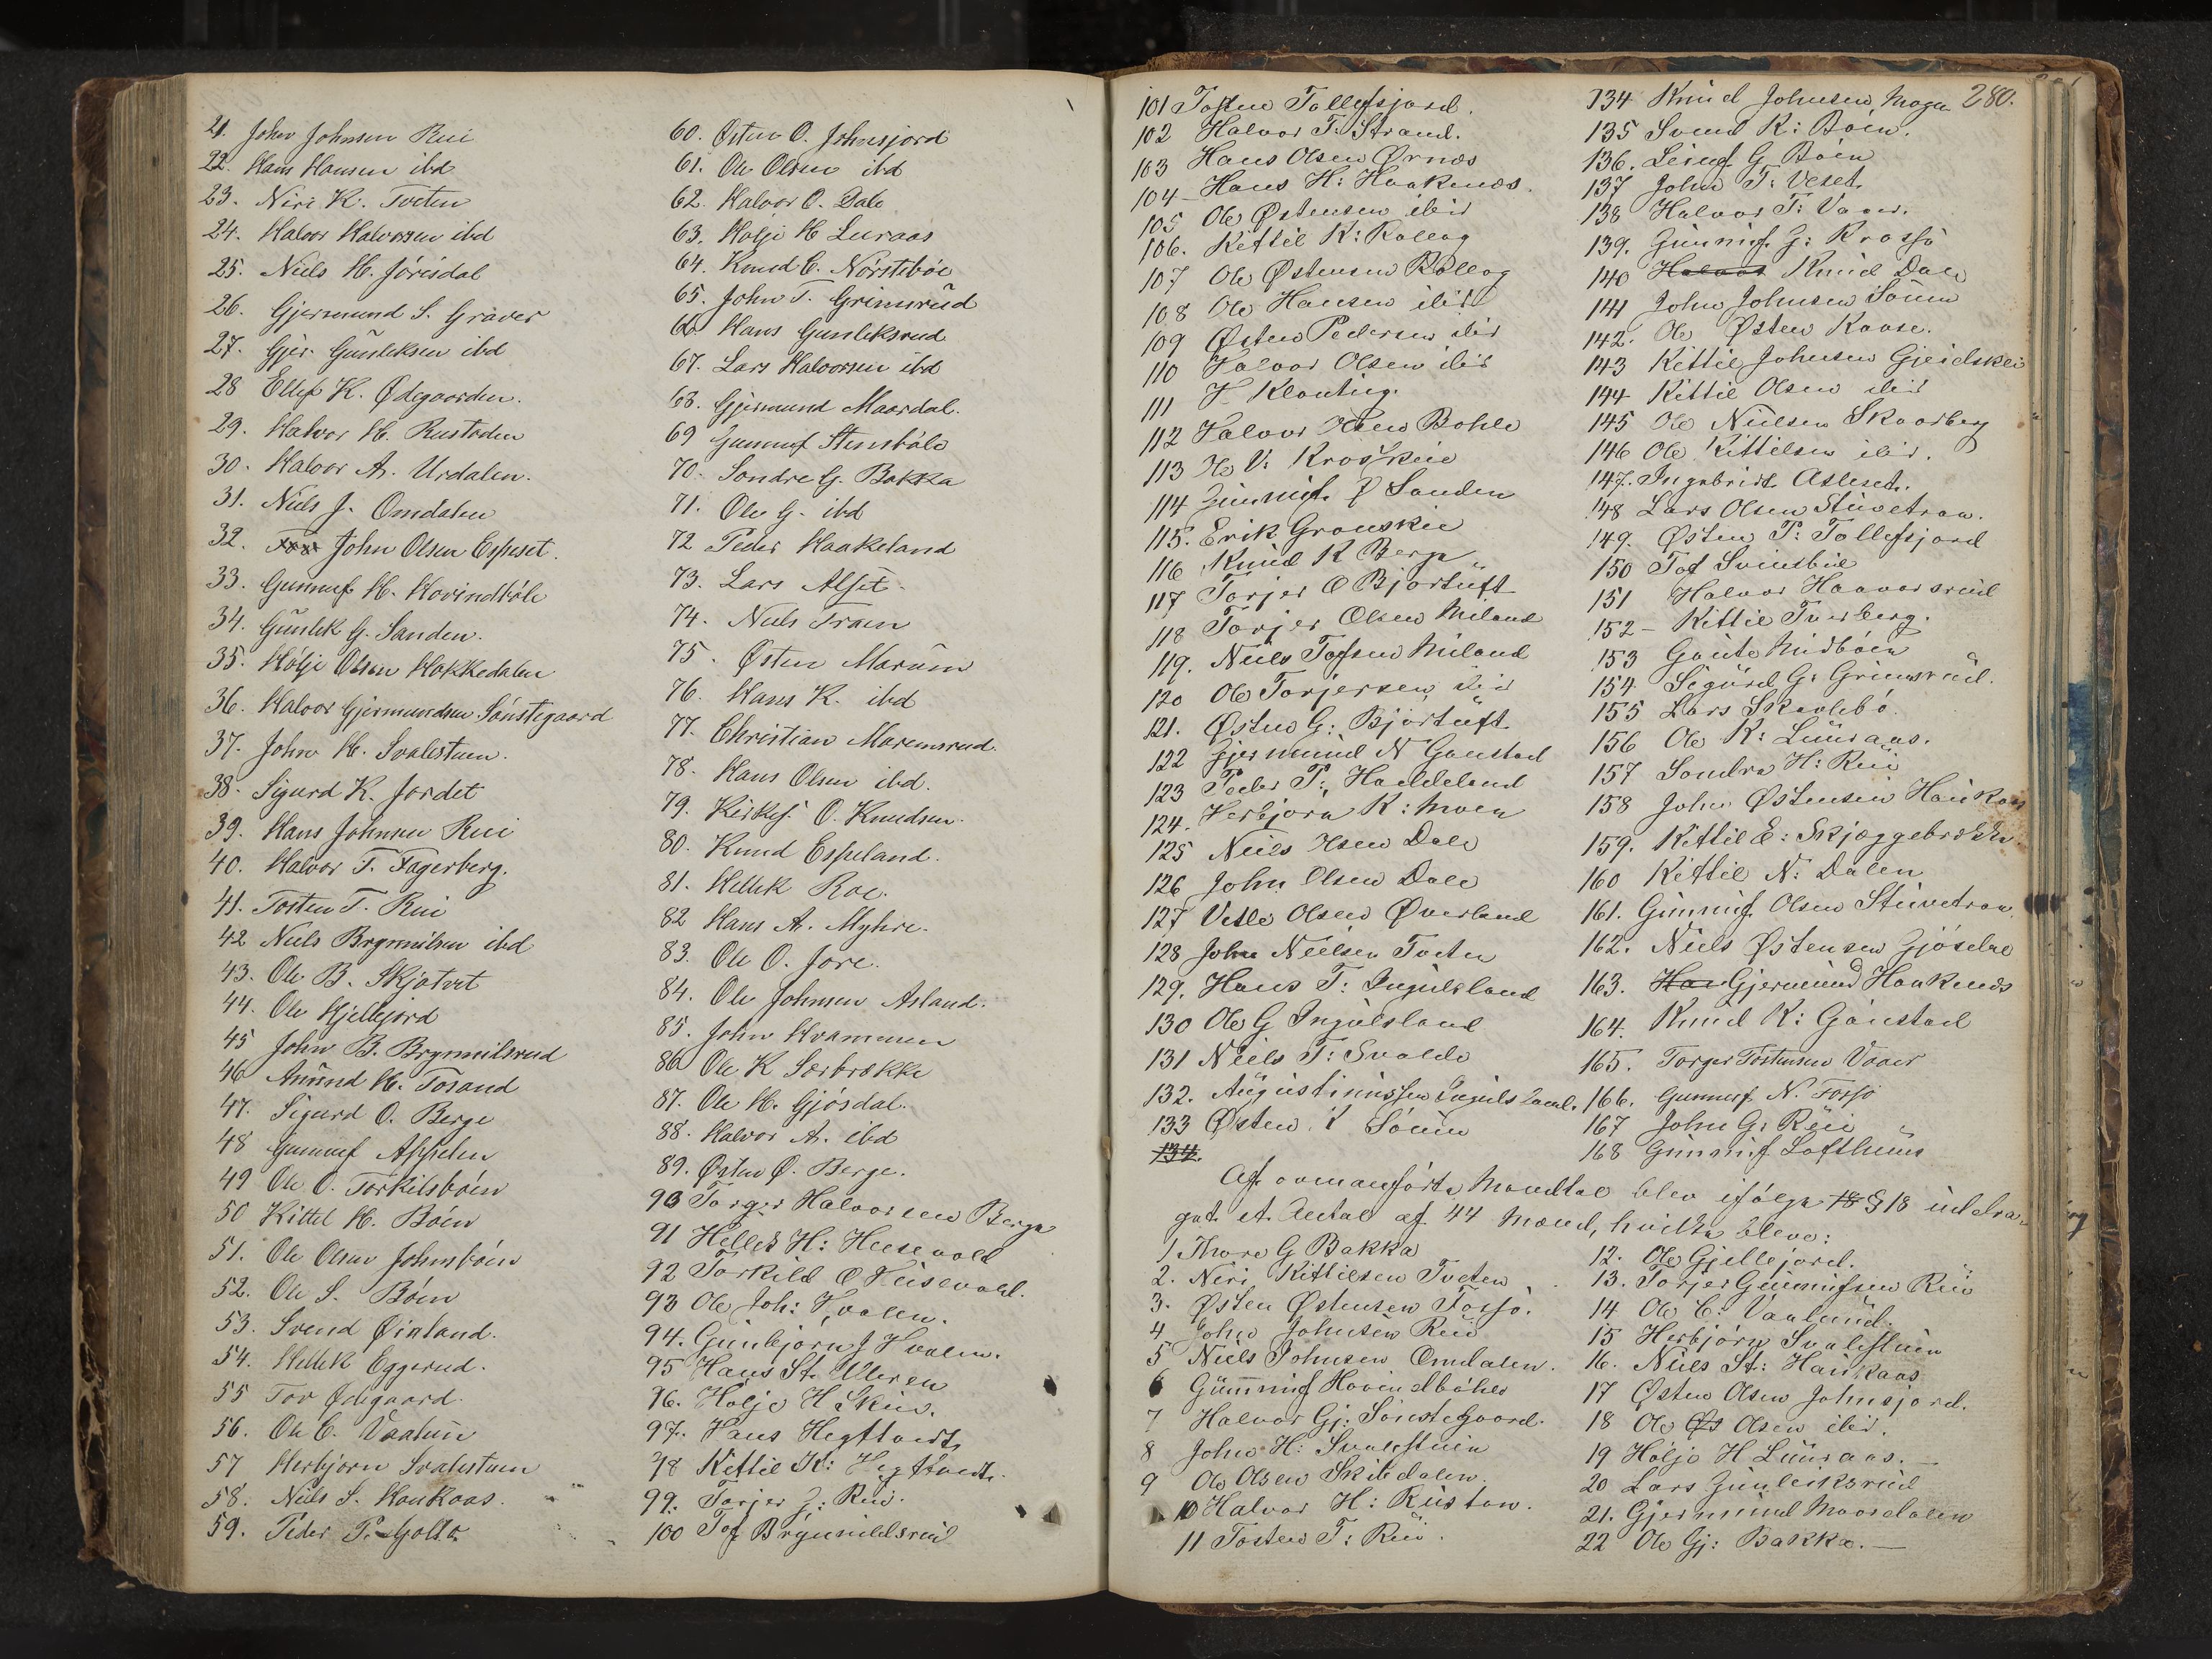 21. John Johnsen Rui
22. Hans Hansen ibd
23. Niri K. Tveten
24. Halvor Halvorsen ibd
25. Niels H. Jörisdal
26. Gjermund S. Gräver
27. Gjer. Gunleksen ibd
28 Ellef K. Ødegaarden.
29. Halvor H. Rustaden
30. Halvor A. Urdalen.
31. Niels J. Omdalen
32. John Olsen Espeset.
33. Gunnuf H. Hovindböle
34. Gunlek G. Sanden.
35. Hölje Olsen Hokkedalen
36. Halvor Gjermundsen Sönstegaard
37. John H. Svalestuen.
38. Sigurd K. Jordet
39. Hans Johnsen Rui
40. Halvor T. Fagerberg.
41. Tosten T. Rui
42 Niels Brynnilsen ibd
43. Ole B. Skjotvet
44. Ole Kjellejord
45 John B. Brynnilsrud
46 Amund H. Torand
47. Sigurd O. Berge
48 Gunnuf Appelen
49 Ole O. Torkilsböen
50 Kittel H. Böen
51. Ole Olsen Johnsböen
52. Ole S. Böen
53. Svend Øialand.
54. Hellek Eggerud.
55 Tov Ødegaard.
56. Ole C. Vaalun
57 Herbjörn Svalestuen
58. Niels S. Haukaas.
59. Peder P. Golta
60. Østen O. Johnsjord
61. Ole Olsen ibd
62. Halvor O. Dale
63. Hölje H Luraas
64. Knud E. Nörsteböe
65. John T. Grimsrud
66 Hans Gunleksrud
67. Lars Halvorsen ibd
68. Gjermund Maardal.
69 Gunnuf Stensböle
70. Sondre G. Bakka
71. Ole G. ibd
72 Peder Haakeland
73. Lars Alset.
74. Niels Traen
75. Østen Marum
76. Hans K. ibd
77. Christian Maremsrud.
78. Hans Olsen ibd.
79. O. Knudsen.
80. Knud Espeland.
81. Hellek Roe.
82 Hans A. Myhre.
83. Ole O. Jore.
84. Ole Johnsen Asland.
85. John Kvammen
86 Ole K Sörbrekke
87. Ole H. Gjösdal.
88. Halvor A. ibd
89. Østen Ø. Berge.
90 Torger Halvorsen Berge
91 Hellek H: Heisevold
92 Torkild O Heisevold.
93 Ole Joh: Hvalen.
94. Gunbjörn J Hvalen.
95 Hans St. Ulleren
96. Hölje H Skeie.
97. Hans Hegtvedt
98 Kettil K: Hegtvedt.
99. Torjer G: Rui.
100 Tof Brynnildsrud
101 Tosten Tollefsjord.
102 Halvor T: Strand.
103 Hans Olsen Ørnæs
104 Hans H: Haakenæs.
105 Ole Østensen ibid
106. Kittil K: Rollag
107 Ole Østensen Rollag
108 Ole Hansen ibid
109 Østen Pedersen ibid
110 Halvor Olsen ibid
111 H Klonting.
112 Halvor Olsen Bohle
113 Ole V: Kroskeie
114 Gunnuf Ø Sanden
115. Erik Gronskei
116 Knud K Berge
117 Torjer O Bjortuft
118 Torjer Olsen Miland
119. Niels Tofsen Miland
120 Ole Torjersen ibid
121. Østen G: Bjortuft
122 Gjermund N Gaustad
123 Peder P: Haddeland
124. Herbjorn K: Moen
125 Niels Olsen Dale
126 John Olsen Dale
127 Vetle Olsen Øverland
128 John Nielsen Tveten
129. Hans T: Ingulsland
130 Ole G Ingulsland
131 Niels T: Svalde
132. Augustinussen Ingulsland.
133 Østen K Sönün
134.
280.
134 Knud Johnsen Mogen
135 Svend K: Böen.
136. Leiuf G Böen
137 John T: Veset.
138 Halvor T: Vaaer.
139. Gunnuf G: Krossö
140 Halvor Knud Dale
141 John Johnsen Sönün
142. Ole Østen Kaase.
143 Kettil Johnsen Gjeidskei
144 Kittil Olsen ibid
145 Ole Nielsen Skaarberg
146 Ole Kittilsen ibid.
147. Ingebrigt Asleset.
148 Lars Olsen Stuvetraan.
149. Østen P: Tollefsjord
150 Tof Svinsbüe
151 Halvor Haavarsrud
152 - Kittil Tverberg.
153 Gaute Midböen
154 Sigurd G: Grimsrud.
155 Lars Skavlebö
156 Ole K: Luraas.
157 Sondre H: Rui
158 John Østensen Haukaas
159. Kittil E: Skjæggebrekke
160 Kittil N: Dalen
161. Gunnuf Olsen Stuvetraan.
162. Niels Østensen Gjösdal
163. Han Gjermund Haakenæs
164. Knud K: Gaustad
165. Torger Tostensen Vaaer
166. Gunnuf N. Tossö
167 John G: Rui
168 Gunnuf Lofthuus
Af ovenanförte Mandtal blev ifölge 18 § 18 uddra-
get et Antal af 44 Mænd, hvilke bleve:
1 Thore G Bakka
2. Niri Kittilsen Tveten
3. Østen Østensen Tossö.
4 John Johnsen Rui
5 Niels Johnsen Omdalen.
6 Gunnuf Hovindböhle
7 Halvor Gj: Sönstegaard.
8 John H: Svalestuen
9 Ole Olsen Skibdalen.
10 Halvor H: Rustan.
11 Tosten T: Rui.
12. Ole Gjellejord.
13. Torjer Gunnufsen Rui
14 Ole C: Vaalund.
15 Herbjörn Svalestuen
16. Niels St: Haukaas
17 Østen Olsen Johnsjord.
18 Ole Øs Olsen ibid.
19 Höljo H Luraas.—
20 Lars Gunleiksrud
21. Gjermund Maardalen
22 Ole Gj: Bakka.—